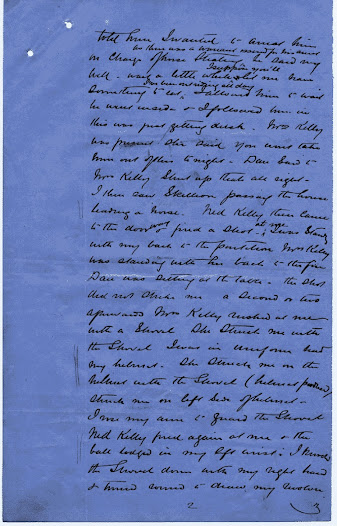 told him I wanted to arrest him
as there was a warrant issued for his arrest
on charge of horse stealing he said very
I suppose you'll
well. wait a little while & let me have
I've been out riding all day
something to eat, I allowed him to wait
he went inside & I followed him in
this was just getting dusk. Mrs Kelly
was present she said you wont take
him out of this tonight - Dan said to
Mrs Kelly Shut up thats all right -
I then saw Skillion passing the house
leading a horse. Ned Kelly then came
to the door and fired a shot at me I was standing
with my back to the partition Mrs Kelly
was standing with her back to the fire
Dan was sitting at the table - the shot
did not strike me a second or two
afterwards Mrs Kelly rushed at me
with a Shovel She struck me with
the Shovel I was in uniform had
my helmet. She struck me on the
helmet with the Shovel (helmet produced)
struck me on left side of helmet -
I rose my arm to guard the Shovel
Ned Kelly fired again at me & the
ball lodged in my left wrist. I knocked
the Shovel down with my right hand
& turned round to draw my revolver
2